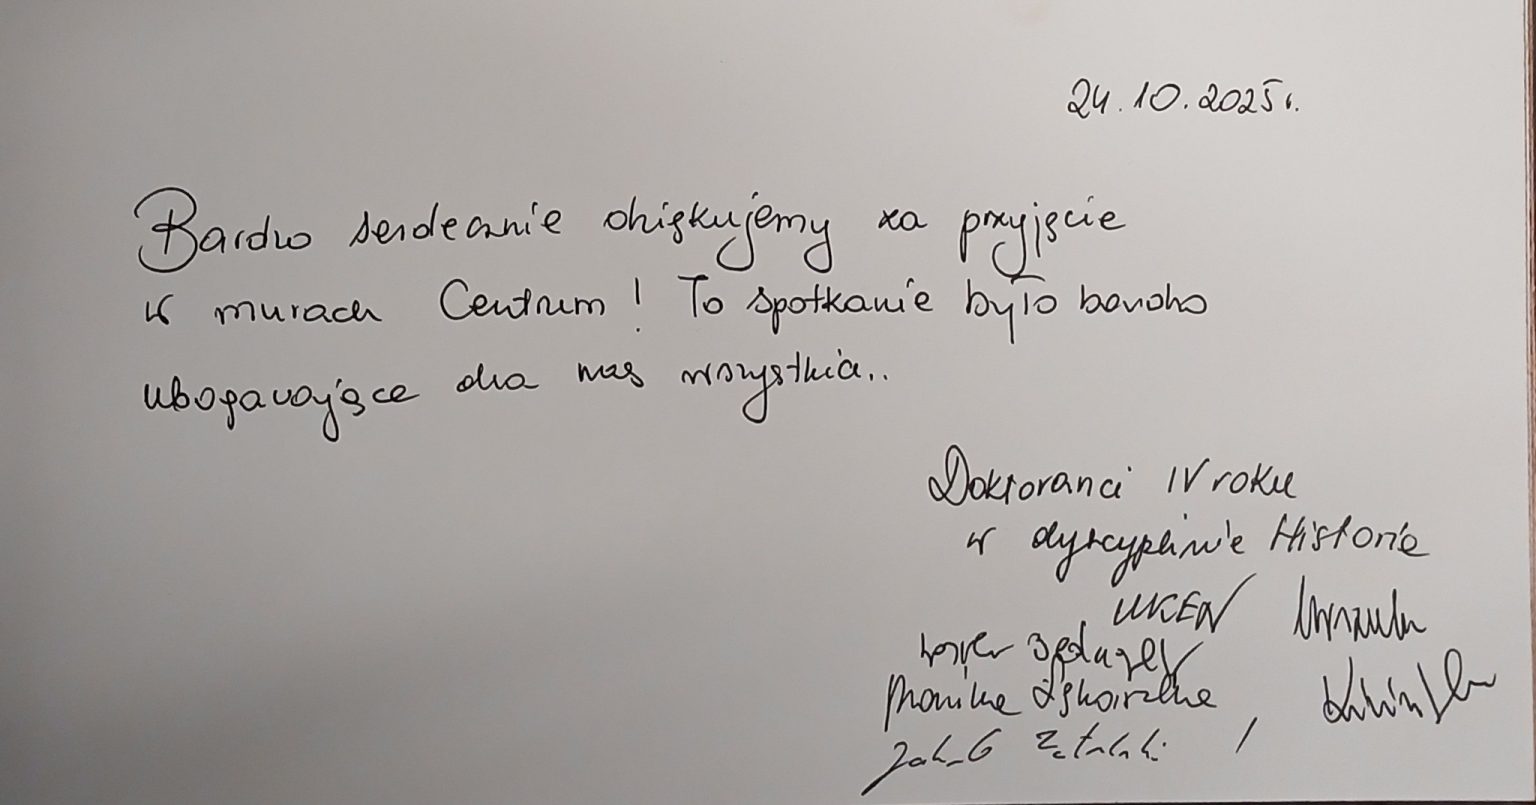 24.10.2025r.
Bardzo serdecznie dziękujemy za przyjęcie
w murach Centrum! To spotkanie było bardzo
ubogacające dla nas wszystkich..
Doktoranci IV roku
w dyscyplinie Historia
UKEN Urszula
Monika
Jakub